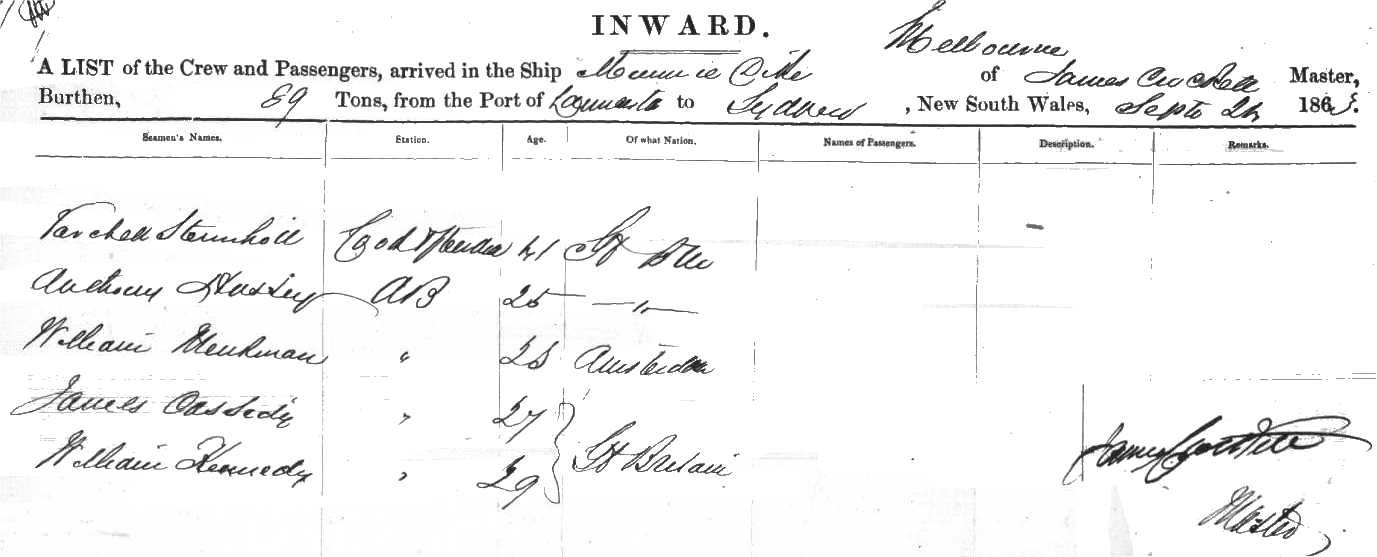 INWARD.
Melbourne
A LIST of the Crew and Passengers, arrived in the Ship Minnie Dike of James Crockett Master,
Burthen, 89 Tons, from the Port of to Sydney, New South Wales, Septr 1863.
Seamen's Names. Station. Age. Of what Nation. Names of Passengers. Description. Remarks.
41 Gt
Anthony Hussey AB 25 — " —
William Menkman " 25 Amsterdam
James Cassedy " 27
William Kennedy " 29 Gt Britain
James Crockett
Master